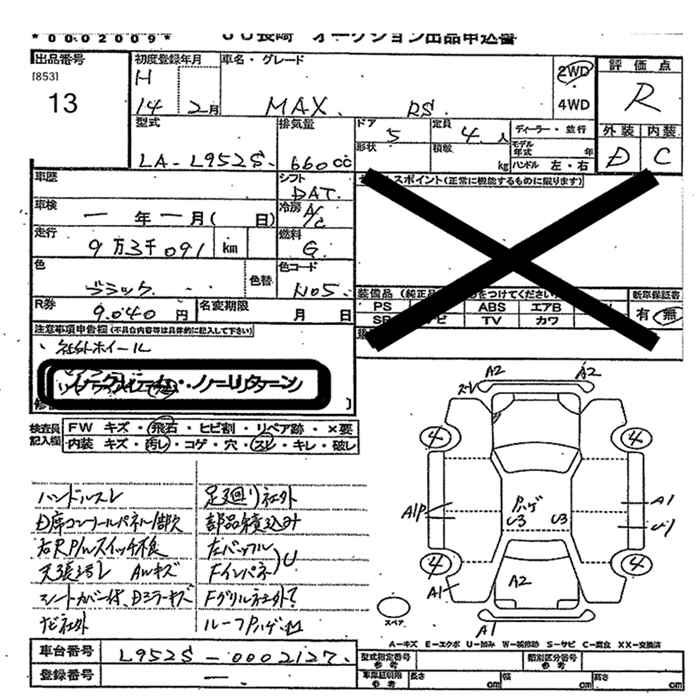 *0002009* JU長崎 オークション出品申込書
出品番号 初度登録年月 車名・グレード 評価点
[853] H 2WD
13 14 2月 MAX RS. 4WD R
型式 排気量 ドア 5 定員 4人 ディーラー・並行 外装 内装
LA-L952S. 660cc 形状 積載 kg モデル年式 年 ハンドル 左・右 D C
車歴 シフト DAT. セールスポイント(正常に機能するものに限ります)
車検 一年一月( 日) 冷房 A/C
走行 9万3千091 km 燃料 G.
色 ブラック 色替 色コード N05.
装備品 新車保証書
R券 9.040円 名変期限 月 日 PS ABS エアB 有・無
TV カワ
注意事項申告欄(不具合内容等は具体的に記入して下さい)
、社外ホイール
ノークレーム・ノーリターン
A2 A2
検査員記入欄 FW キズ・飛石・ヒビ割・リペア跡・×要
内装 キズ・汚レ・コゲ・穴・スレ・キレ・破レ
4 4
ハンドルスレ 足廻り社外
D席コントロールパネル1部欠 部品積込み
右RP/Wスイッチ不良 左バックル
天張汚レ AWキズ Fインパネ)U
シートカバー付、Dミラーキズ Fグリル社外?
ナビ社外 ルーフPハゲ・凹
A1P Pハゲ U3 U3 A1 U1
4 4
A1 A2
スペア A1
A-キズ E-エクボ U-凹み W-補修跡 S-サビ C-腐食 XX-交換済
車台番号 L952S-0002127. 型式指定番号 参考 類別区分番号 参考
登録番号 ー. 車庫証明用 参考 長さ cm 幅 cm 高さ cm